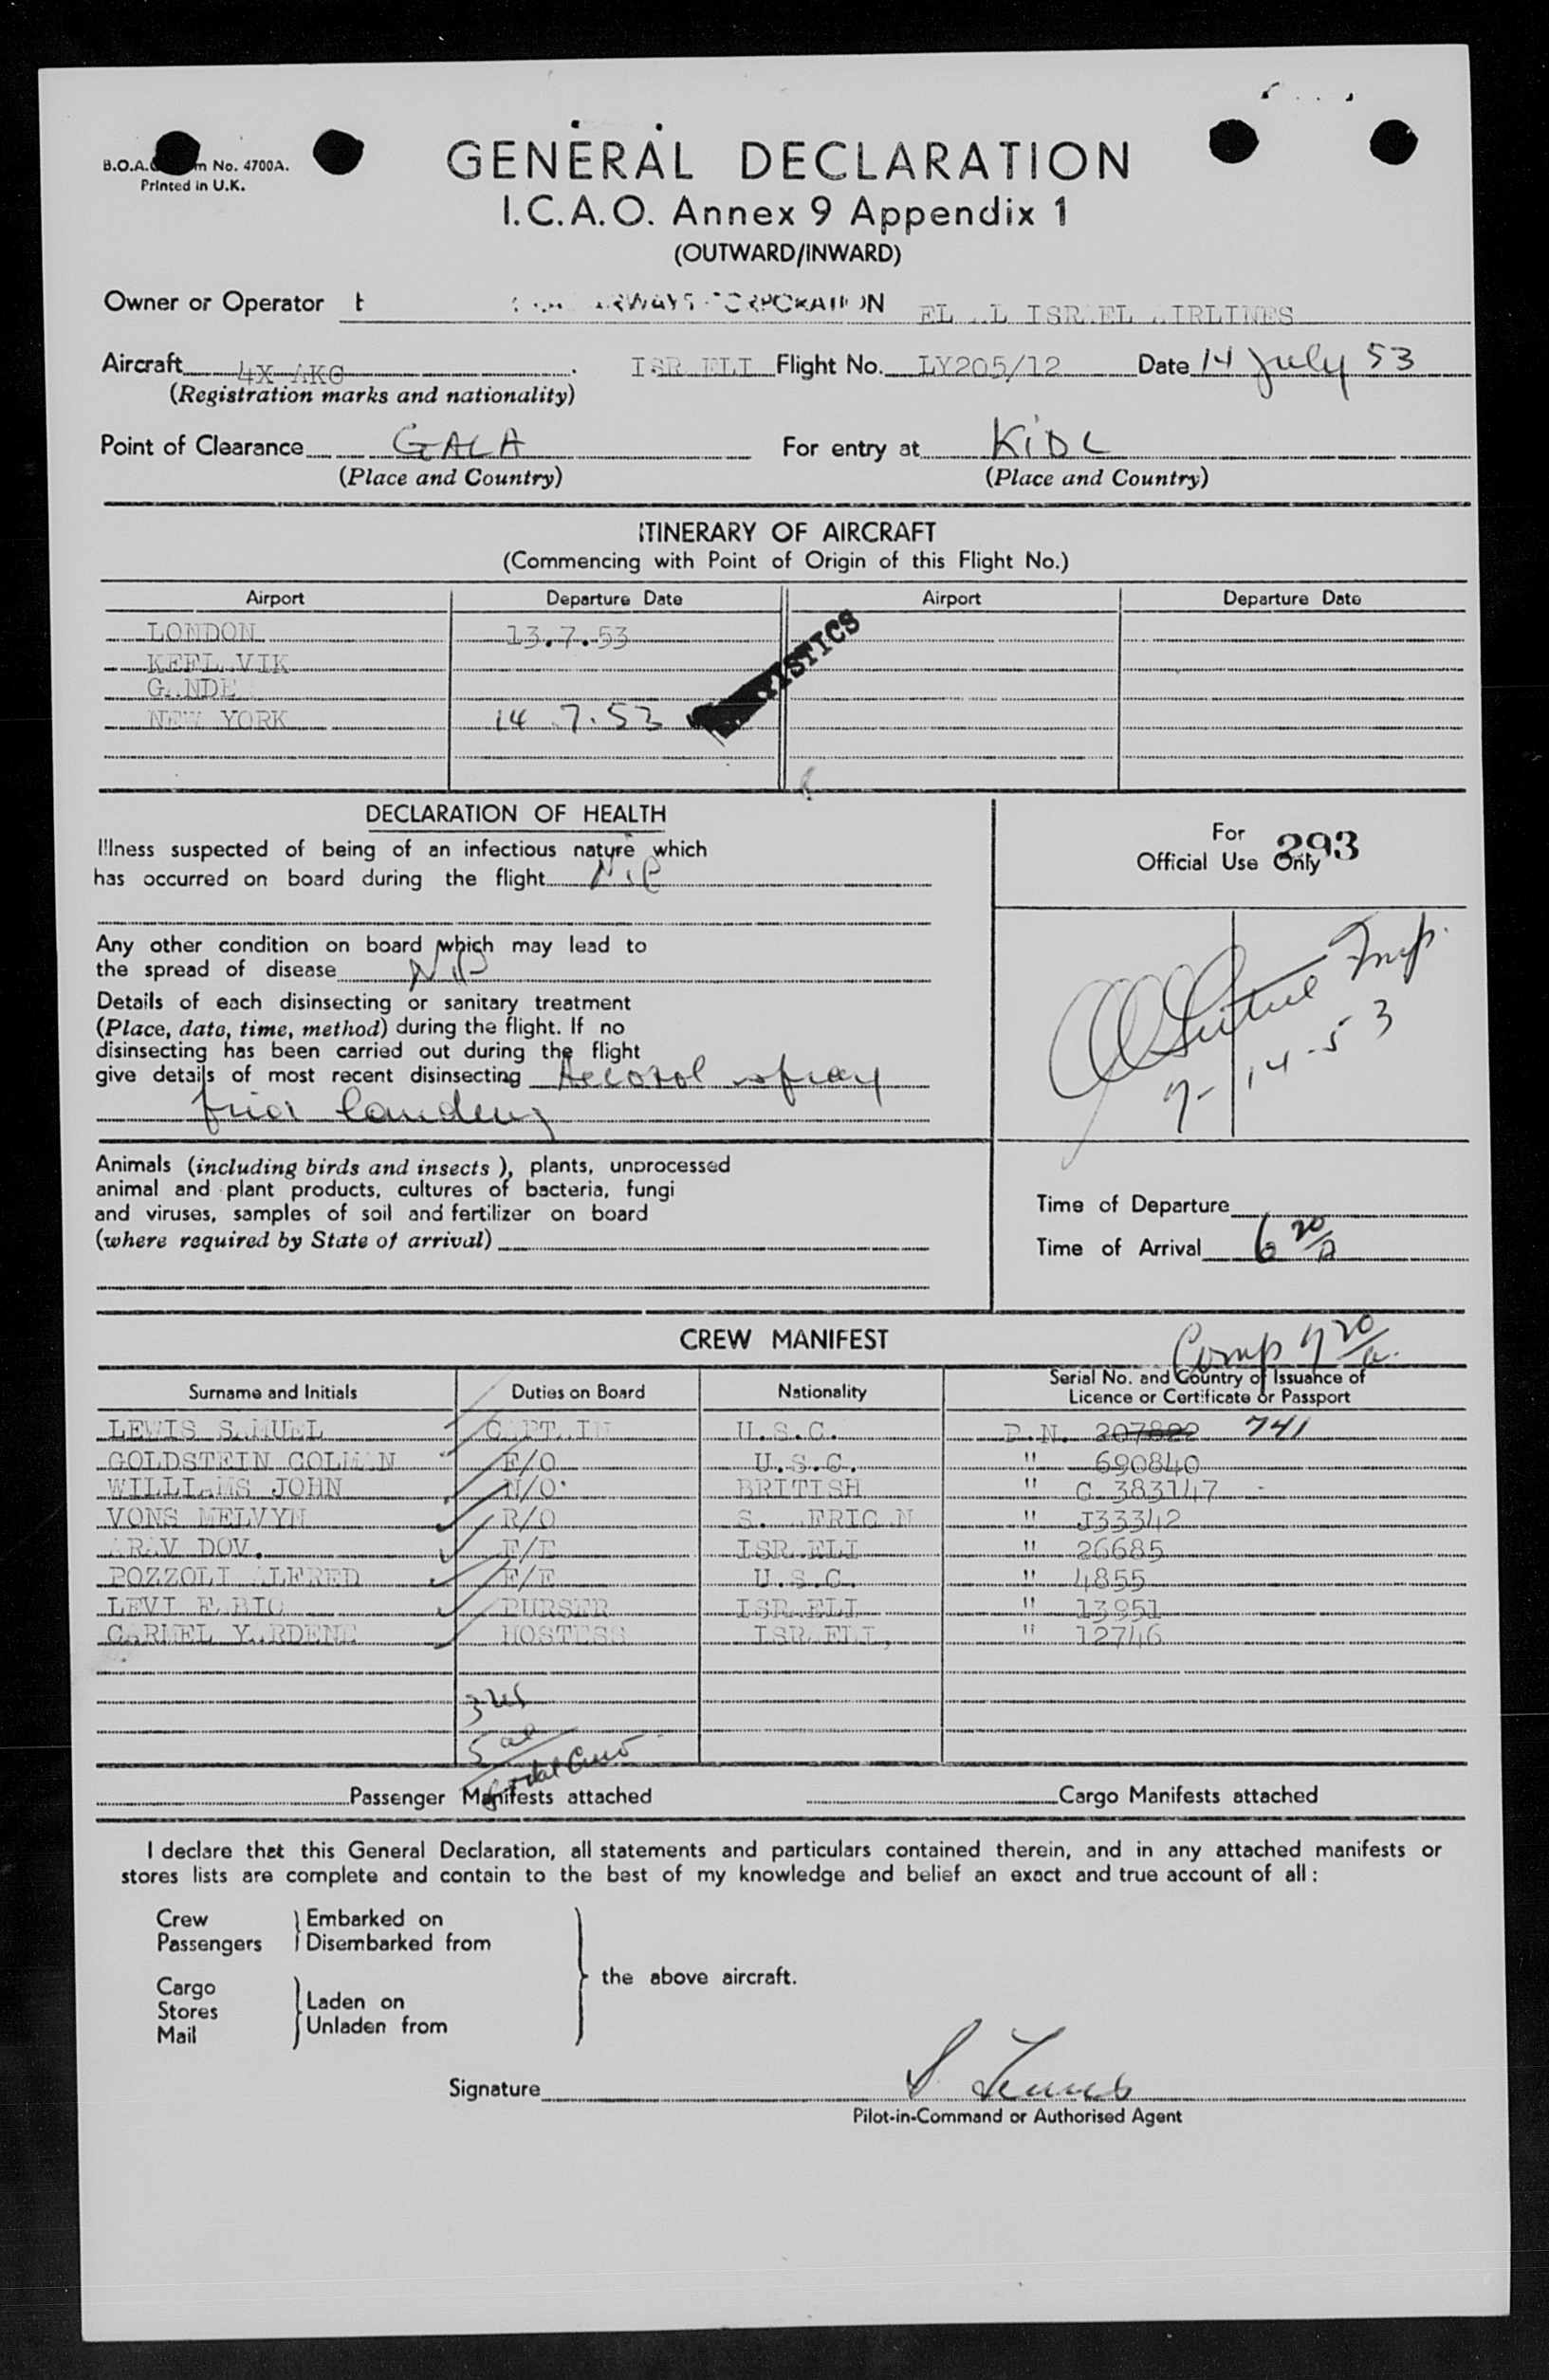 B.O.A.C. Form No. 4700A.
Printed in U.K.
GENERAL DECLARATION
I.C.A.O. Annex 9 Appendix 1
(OUTWARD/INWARD)
Owner or Operator EL AL ISRAEL AIRLINES
Aircraft 4X AKC ISRAELI Flight No. LY205/12 Date 14 July 53
(Registration marks and nationality)
Point of Clearance GALA For entry at KIDL
(Place and Country) (Place and Country)
ITINERARY OF AIRCRAFT
(Commencing with Point of Origin of this Flight No.)
Airport Departure Date Airport Departure Date
LONDON 13.7.53
KEFLAVIK
GANDE
NEW YORK 14.7.53
DECLARATION OF HEALTH
Illness suspected of being of an infectious nature which
has occurred on board during the flight Nil
For
Official Use Only 293
Any other condition on board which may lead to
the spread of disease Nil
Details of each disinsecting or sanitary treatment
(Place, date, time, method) during the flight. If no
disinsecting has been carried out during the flight
give details of most recent disinsecting Aerosol spray
prior landing
Insp.
7-14-53
Animals (including birds and insects), plants, unprocessed
animal and plant products, cultures of bacteria, fungi
and viruses, samples of soil and fertilizer on board
(where required by State of arrival)
Time of Departure
Time of Arrival 6 20/A
CREW MANIFEST
Comp 7 20/a.
Surname and Initials Duties on Board Nationality Serial No. and Country of Issuance of
Licence or Certificate or Passport
LEWIS SAMUEL CAPTAIN U.S.C. P.N. 207822 741
GOLDSTEIN COLMAN F/O U.S.C. " 690840
WILLIAMS JOHN N/O BRITISH " C 383147
VONS MELVYN R/O S. AFRICAN " J33342
ARAV DOV. F/E ISRAELI " 26685
POZZOLI ALFRED F/E U.S.C. " 4855
LEVI FABIO PURSER ISRAELI " 13951
CARMEL YARDENE HOSTESS ISRAELI, " 12746
3 us
5 al
total crew
Passenger Manifests attached Cargo Manifests attached
I declare that this General Declaration, all statements and particulars contained therein, and in any attached manifests or
stores lists are complete and contain to the best of my knowledge and belief an exact and true account of all:
Crew Embarked on
Passengers Disembarked from
the above aircraft.
Cargo
Stores Laden on
Mail Unladen from
Signature S Lewis
Pilot-in-Command or Authorised Agent